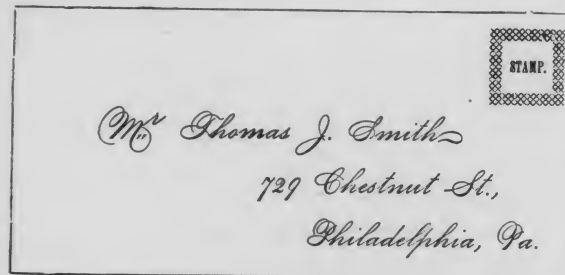 STAMP.
Mr Thomas J. Smith
729 Chestnut St.,
Philadelphia, Pa.